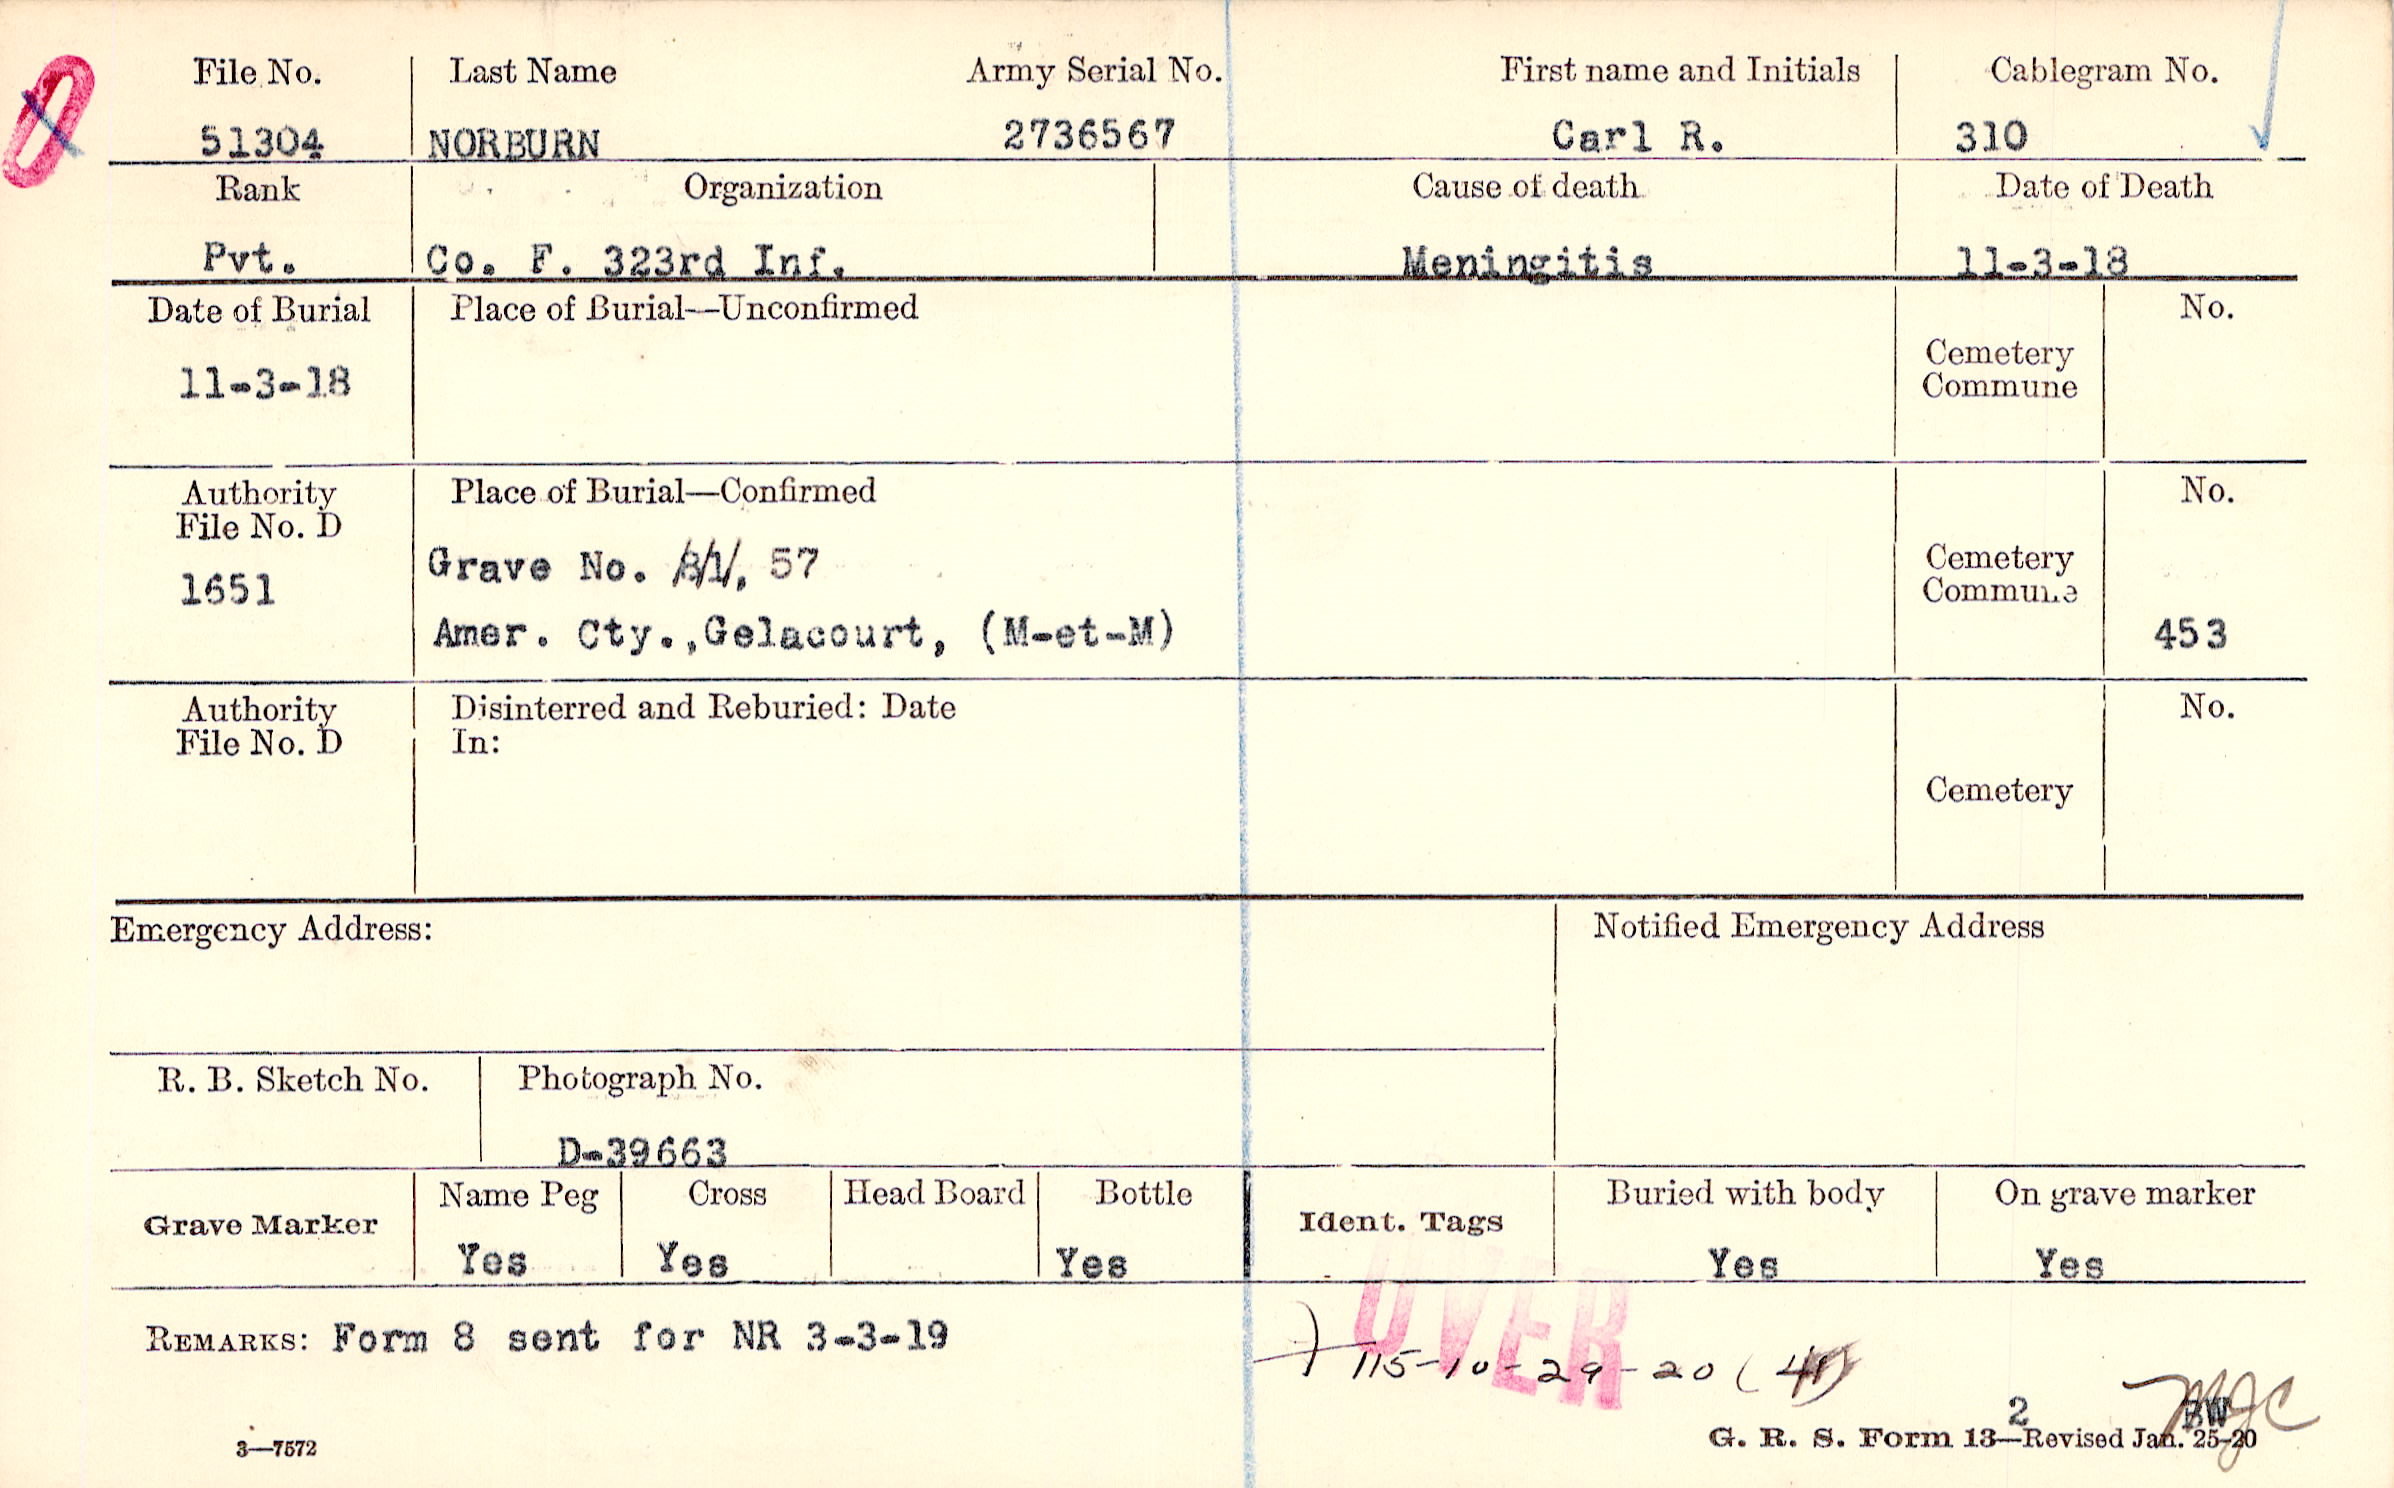 File No. Last Name Army Serial No. First name and Initials Cablegram No.
51304 NORBURN 2736567 Carl R. 310
Rank Organization Cause of death Date of Death
Pvt. Co. F. 323rd Inf. Meningitis 11-3-18
Date of Burial Place of Burial—Unconfirmed No.
Cemetery
Commune
11-3-18
Authority Place of Burial—Confirmed No.
File No. D
Grave No. 81, 57
Cemetery
1651 Commune
Amer. Cty.,Gelacourt, (M-et-M) 453
Authority Disinterred and Reburied: Date No.
File No. D In:
Cemetery
Emergency Address: Notified Emergency Address
R. B. Sketch No. Photograph No.
D-39663
Name Peg Cross Head Board Bottle Buried with body On grave marker
Grave Marker Ident. Tags
Yes Yes Yes Yes Yes
OVER
REMARKS: Form 8 sent for NR 3-3-19
115-10-29-20
2 BW
MJC
3—7572 G. R. S. Form 13—Revised Jan. 25-20